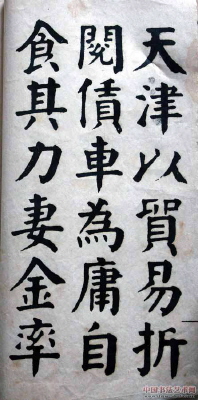 天津以貿易折
閱債車為庸自
食其力妻金率